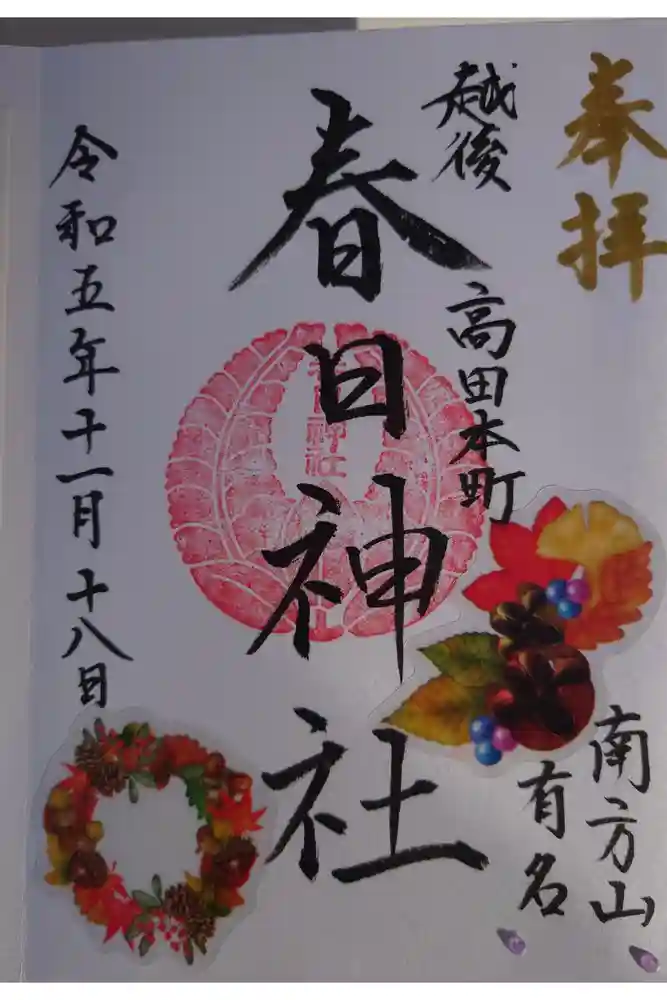 奉拝
越後
高田本町
春日神社
春日神社
令和五年十一月十八日
南方山
有名